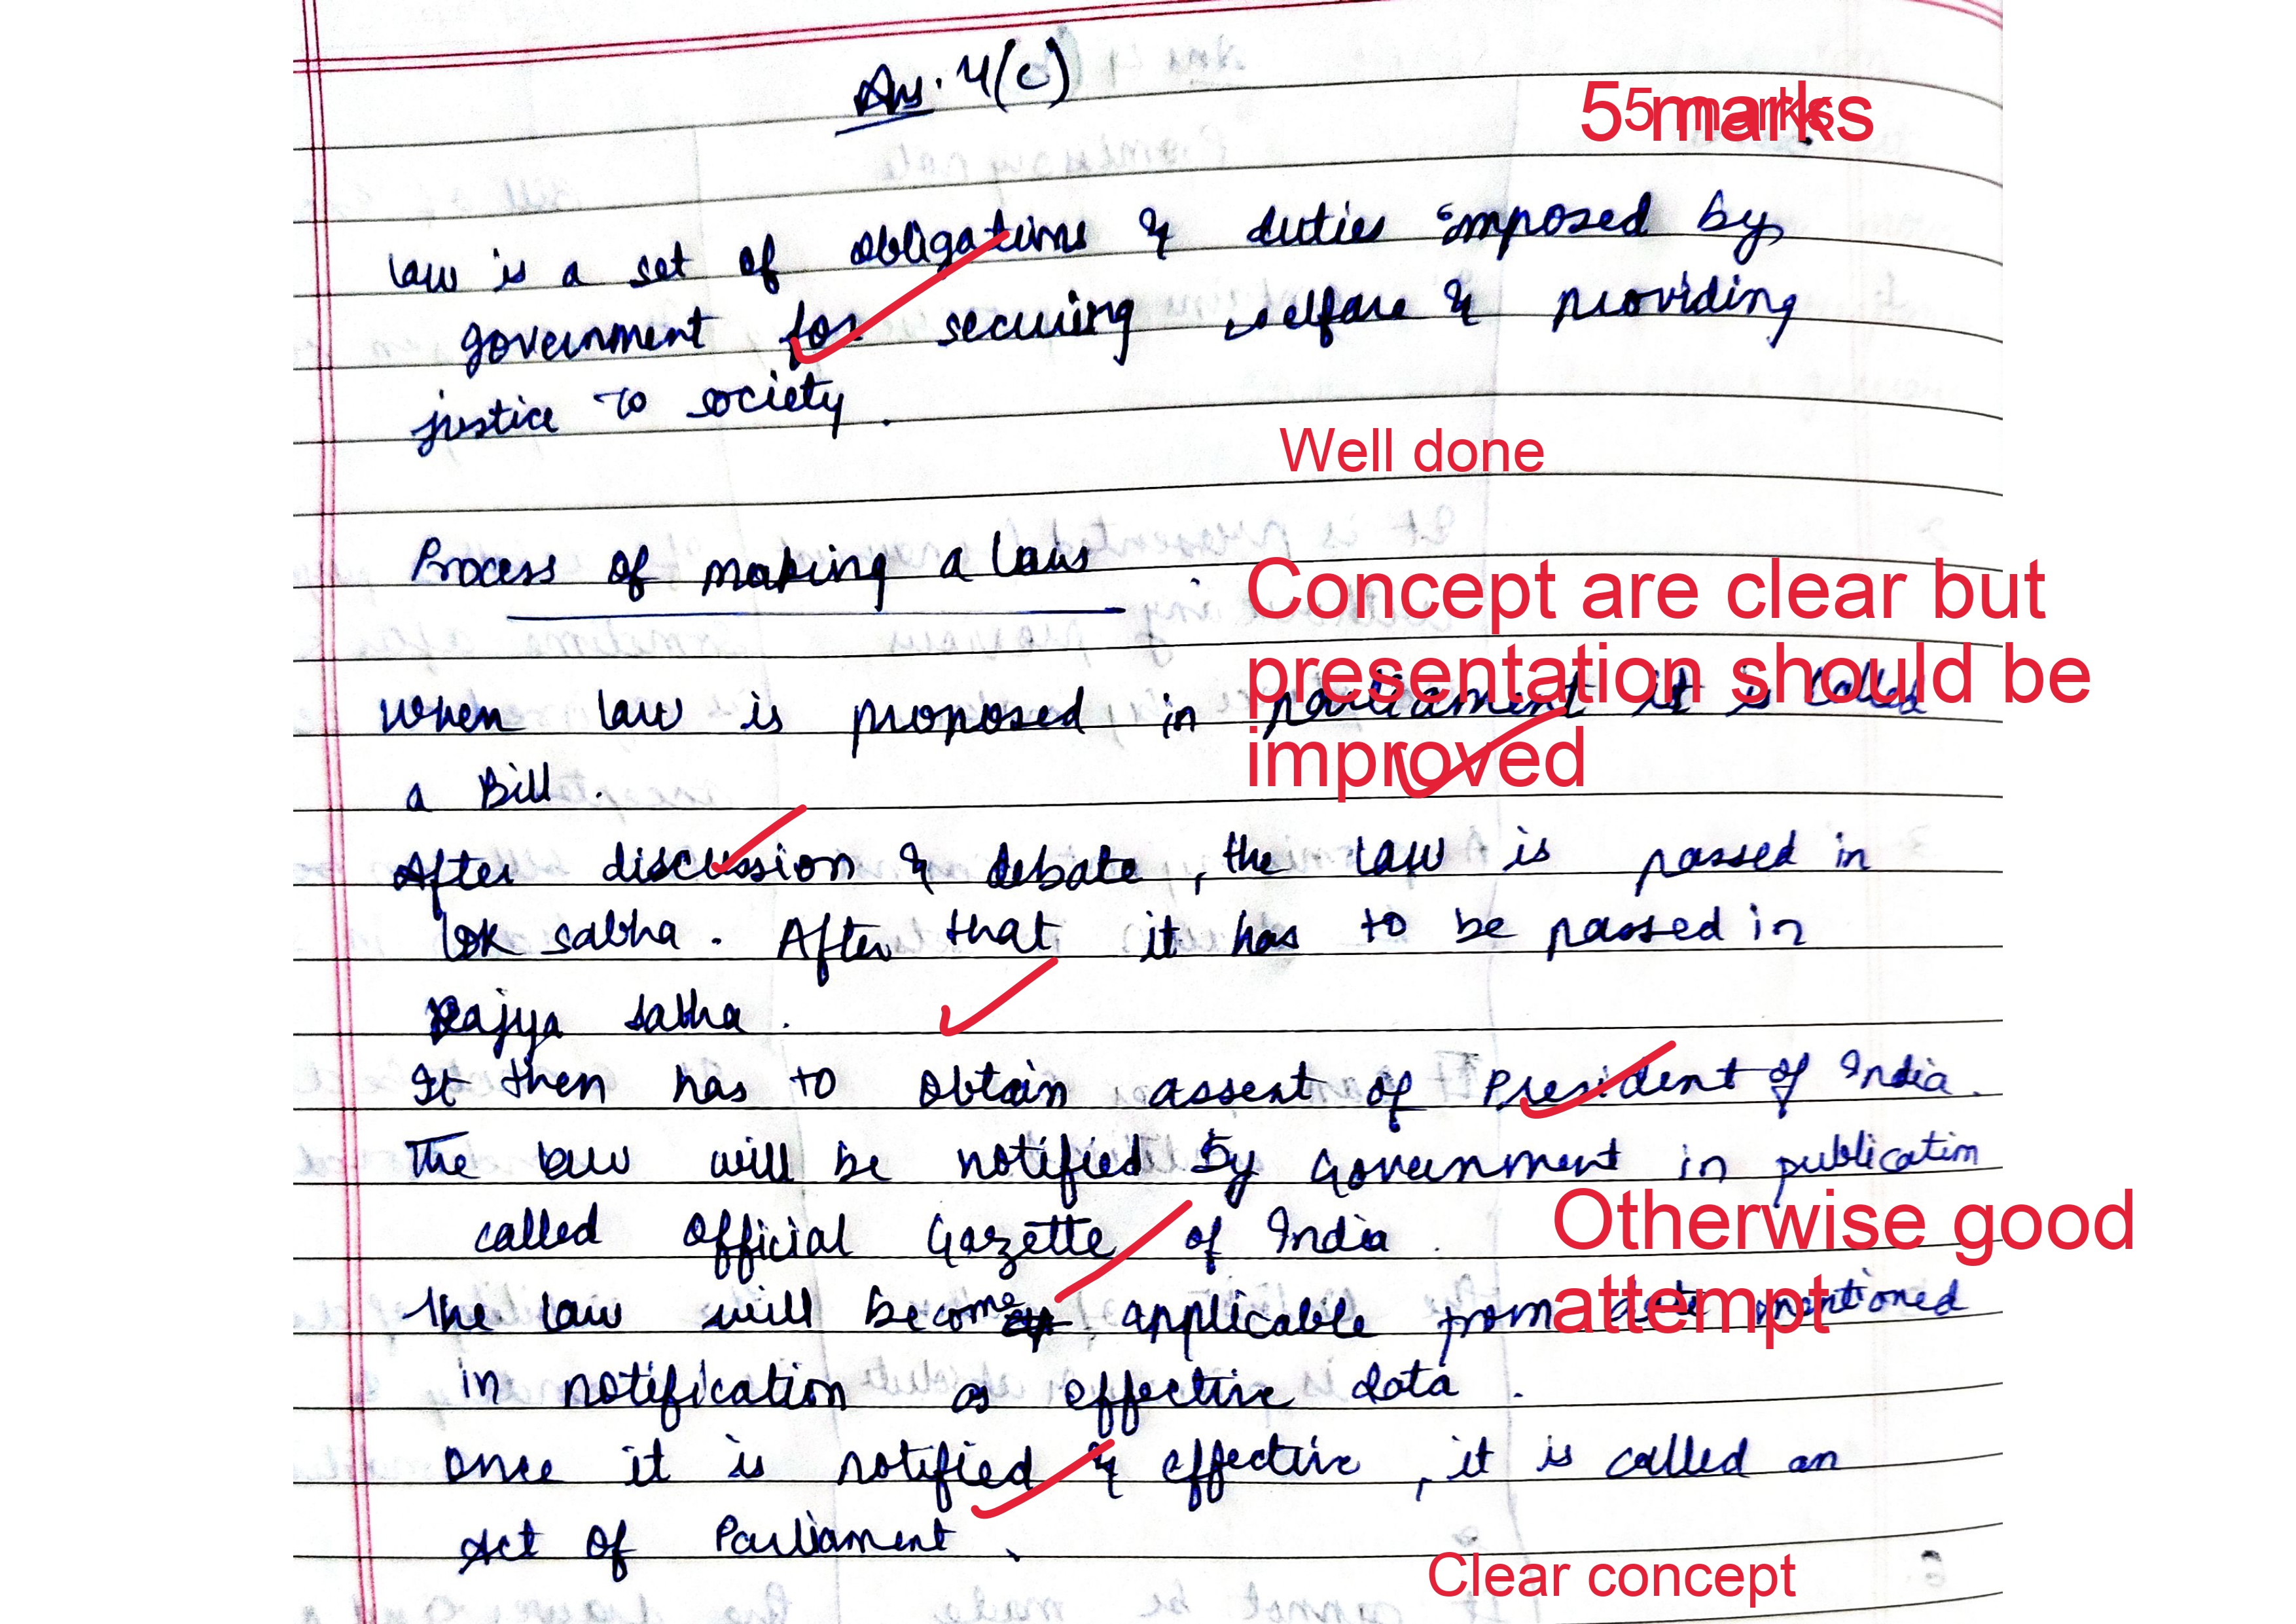 Ans. 4(c)
5 marks
5 marks
Law is a set of obligations & duties imposed by
government for securing welfare & providing
justice to society.
Well done
Process of making a law
Concept are clear but
presentation should be
improved
When law is proposed in parliament it is called
a Bill.
After discussion & debate, the law is passed in
Lok sabha. After that it has to be passed in
Rajya sabha.
It then has to obtain assent of President of India.
The law will be notified by Government in publication
called Official Gazette of India.
Otherwise good
attempt
The law will become applicable from date mentioned
in notification as effective data.
Once it is notified & effective, it is called an
Act of Parliament.
Clear concept